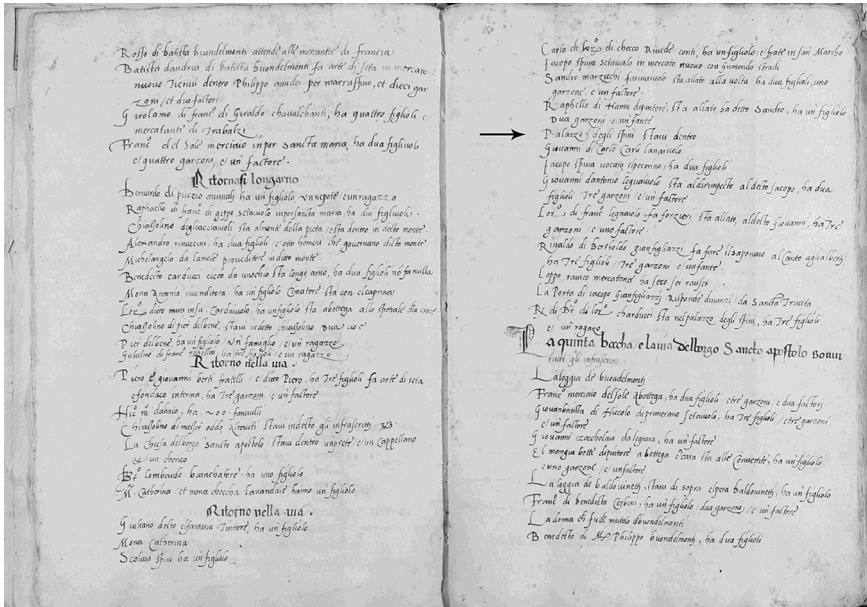 Rosso di batista buondelmonti attende alle mercantie di francia
Batista dandrea di batista buondelmonti fa arte di seta in mercato
nuovo dentro Philippo amidei per marruffino, et dieci gar
zoni, et due fattori.
Girolamo di franc.º di Giraldo chavalchanti, ha quattro figlioli e
mercatante di
Franc.º del Sole merciaio in por sancta maria, ha dua figliuoli
e quattro garzoni, e un fattore.
Ritornasi longarno
Bernardo di puccio ha un figliolo un nepote e un ragazzo
Raphaello di franc.º di setaiuolo in por santa maria, ha dua figliuoli.
Chiassolino sta al monte della pieta, e sta dentro in detto monte
Alexandro rinuccini, ha dua figlioli e otto homini che governano detto monte
Michelangelo da proveditore in ditto monte.
Benedetto carducci cieco da unochio sta longo arno, ha dua figlioli no fa nulla
Mona Antonia rivenditora ha un figliolo Cimatore sta con
Lor.º ditto Cardaiuolo, ha un figliolo sta a bottega allo spedale di
Chiassolino di pier delbene, stavi in detto chiassolino
Pier delbene, ha un figliolo un famiglio e un ragazzo
Guilielmo di franc.º ha tre figlioli e un ragazzo
Ritorno nella via.
Piero e giovanni berti fratelli e ditto Piero, ha Tre figlioli fa arte di seta
e fondaco interma, ha Tre garzoni e un fattore
ha. fanciulli
Chiassolino di messer oddo Altoviti stavi in detto gli infrascripti
La Chiesa del borgo Sancto apostolo stavi dentro un prete e un Cappellano
et un cherico
lombardo bianchatore, ha uno figliolo
M. Catherina et mona checcha lavandale hanno un figliolo
Ritorno nella via.
Giuliano detto Tintore, ha un figliolo
Mona Catherina
Scolaio spini ha un figliolo
Carlo di Lor.º di checco Rivede conti, ha un figliolo e frate in san Marcho
Iacopo spina setaiuolo in mercato nuovo con stradi
Sandro marzuchi farinaiuolo sta allato alla volta ha dua figlioli, uno
garzone e un fattore.
Raphello di dipintore, sta allato ha detto Sandro, ha un figliolo
Dua garzoni e un fante
Palazzo degli spini stavi dentro
Giovanni di Carlo Carli lanaiuolo
Iacopo spina vocato ha dua figlioli
Giovanni dantonio legnaiuolo sta aldirimpecto al detto jacopo, ha dua
figlioli Tre garzoni e un fattore.
Lor.º di franc.º legnaiuolo fa forzieri sta allato, aldetto Giovanni, ha Tre
garzoni e uno fattore.
Rinaldo di Bertholdo gianfigliazzi fa fare il saponaio al canto agli alberti
ha Tre figlioli, Tre garzoni, e un fante.
mercatante ha seco sei
La Porta di iacopo gianfigliazzi risponde dinanzi da Santa Trinita
charducci sta nel palazzo degli spini, ha Tre figlioli
e un ragazo
La quinta boccha e la via del borgo Sancto apostolo sonvi
gli infrascripti
La loggia de buondelmonti
Franc.º merciaio del sole a bottega, ha dua figlioli e tre garzoni, e dua fattori
Giovanbatista di Niccolo setaiuolo, ha Tre figlioli, e tre garzoni
e un fattore
Giovanni ha un fattore
El mangia botti dipintore a bottega e casa sta alle Convertite, ha un figliolo
e uno garzone, e un fattore
La loggia de baldovinetti, stavi di sopra baldovinetti, ha un figliolo
Franc.º di benedetto Corbini, ha un figliolo, dua garzoni, e un fattore
La donna buondelmonti
Benedetto di M. Philippo buondelmonti, ha dua figlioli